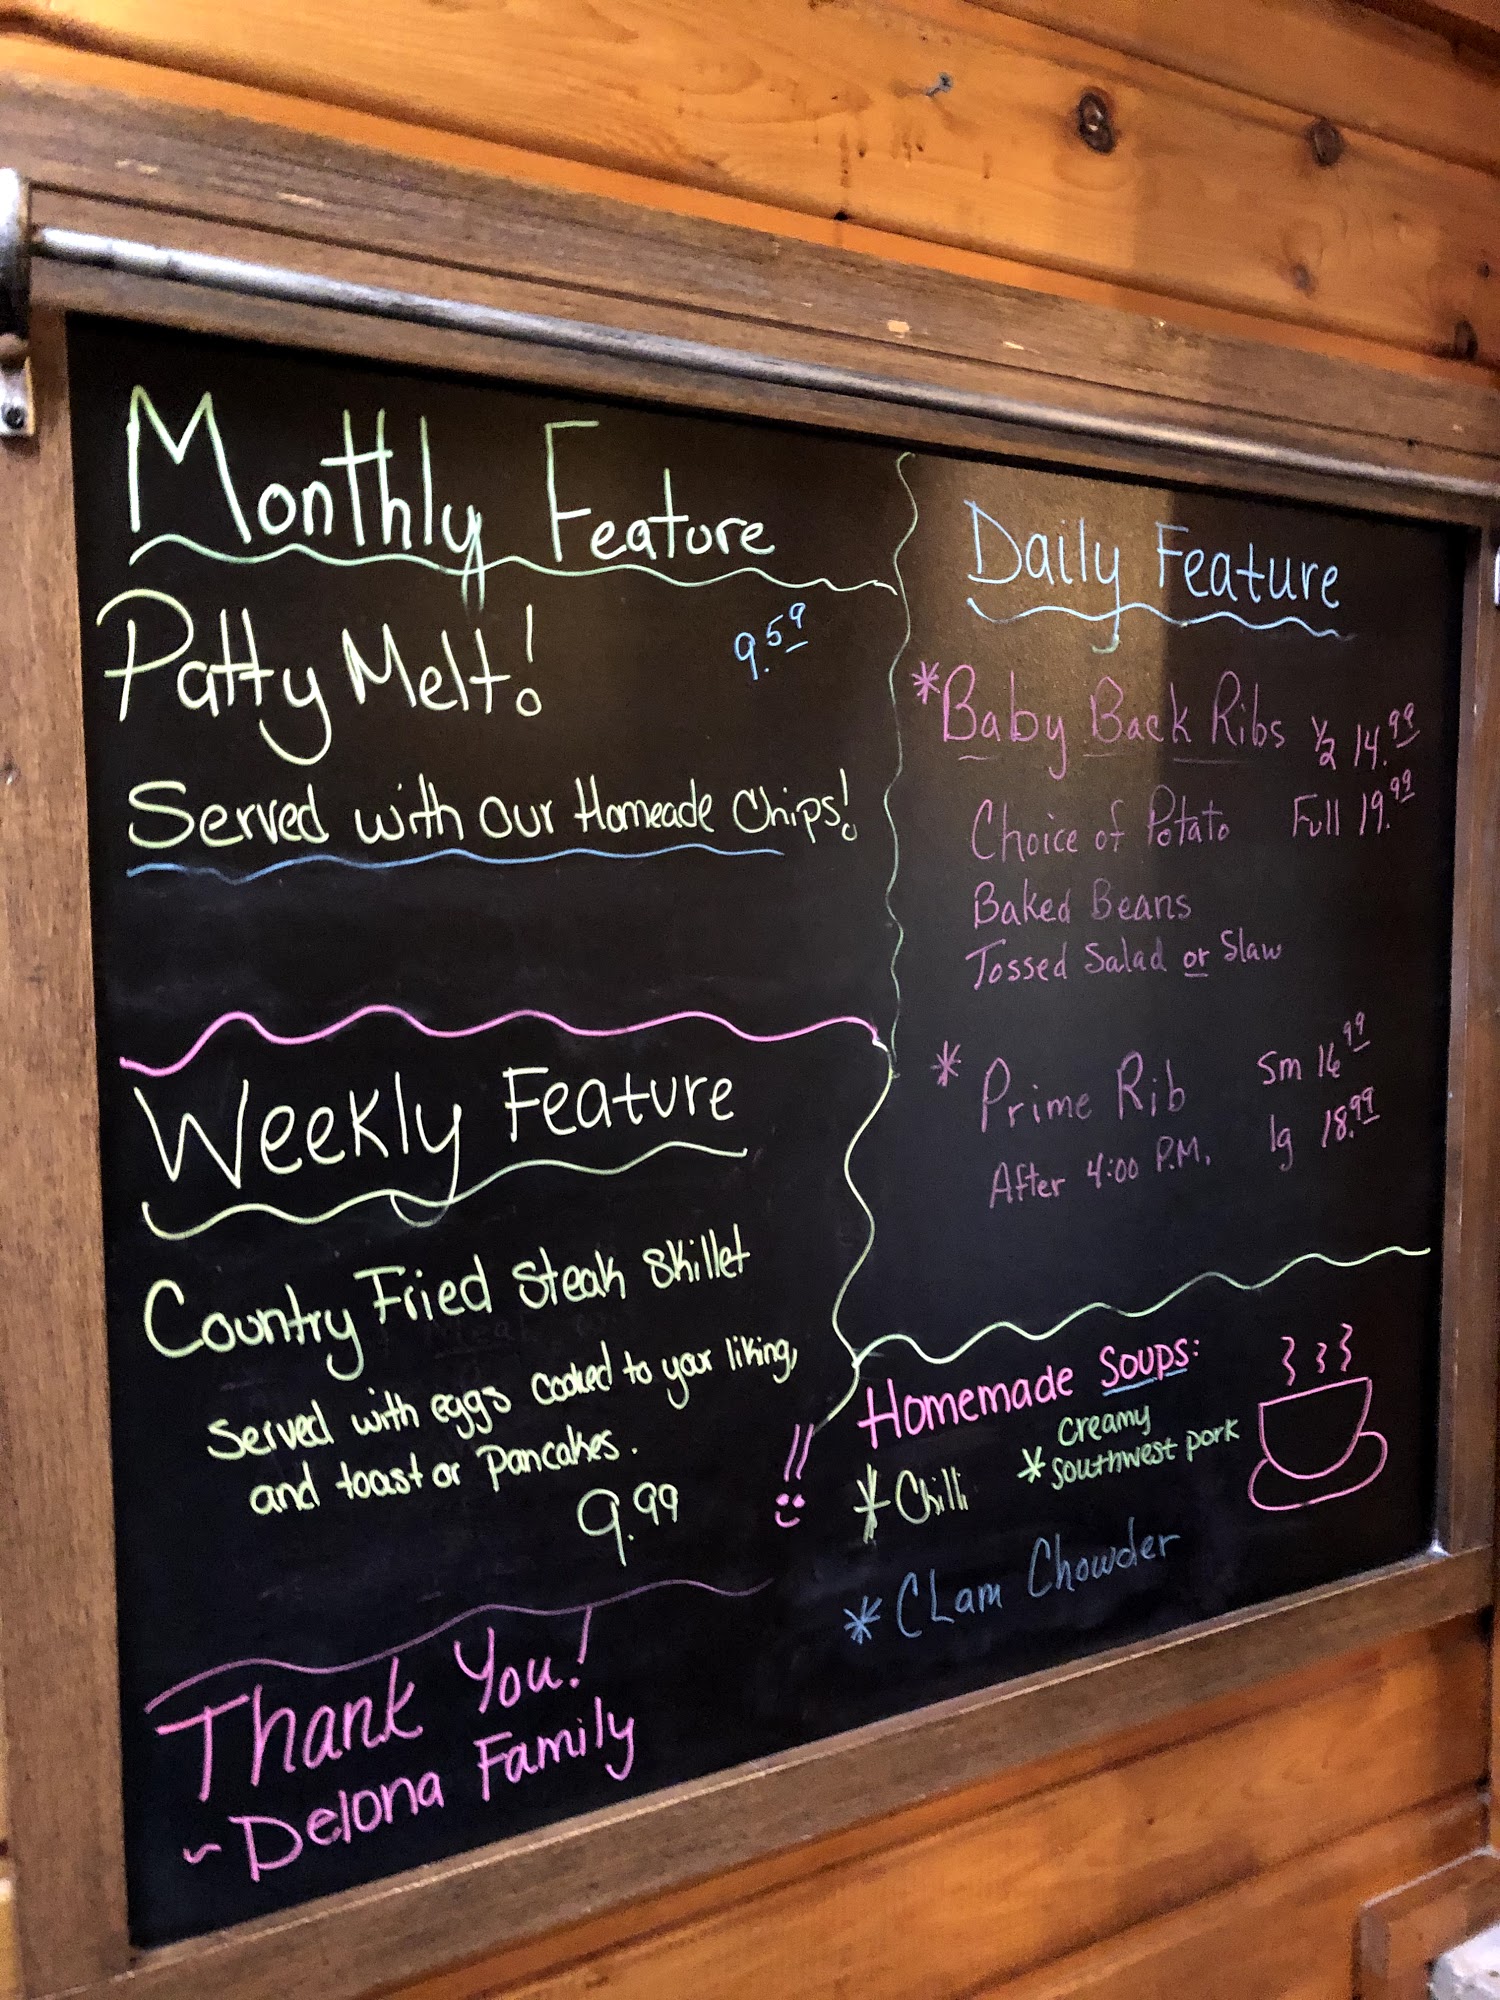 Monthly Feature
Patty Melt! 9.59
Served with our Homeade Chips!
Weekly Feature
Country Fried Steak Skillet
Served with eggs cooked to your liking,
and toast or pancakes.
9.99
Thank You!
~Delona Family
Daily Feature
*Baby Back Ribs ½ 14.99
Choice of Potato Full 19.99
Baked Beans
Tossed Salad or Slaw
* Prime Rib Sm 16 99
After 4:00 P.M. lg 18.99
Homemade Soups:
* Chilli
* Creamy
southwest pork
* CLam Chowder